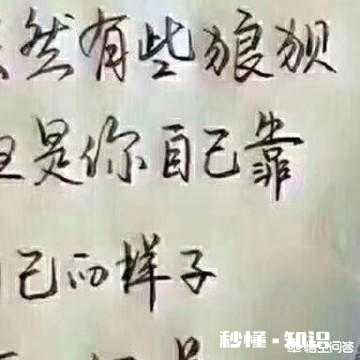 然有些狼狈
是你自己靠
己的样子
秒懂·知识
悟空问答